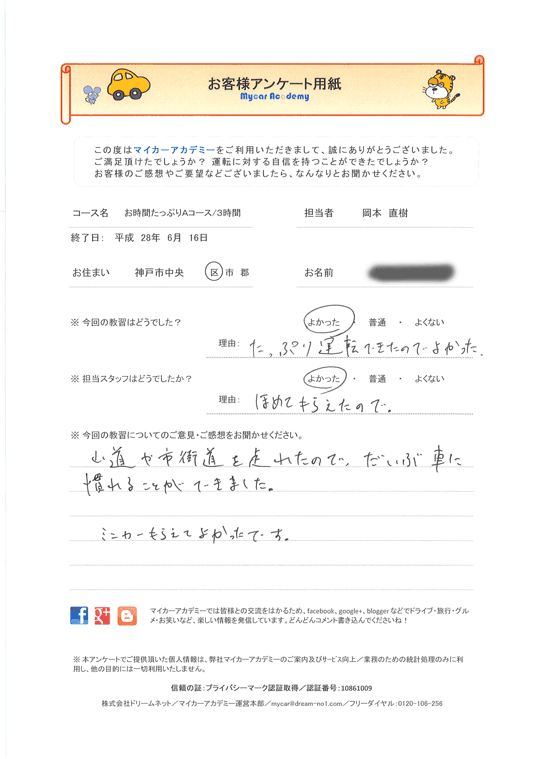 お客様アンケート用紙
Mycar Academy
この度はマイカーアカデミーをご利用いただきまして、誠にありがとうございました。
ご満足頂けたでしょうか？ 運転に対する自信を持つことができたでしょうか？
お客様のご感想やご要望などございましたら、なんなりとお聞かせください。
コース名 お時間たっぷりAコース/3時間 担当者 岡本 直樹
終了日: 平成 28年 6月 16日
お住まい 神戸市中央 区 市 郡 お名前
※ 今回の教習はどうでした？ よかった ・ 普通 ・ よくない
理由: たっぷり運転できたのでよかった.
※ 担当スタッフはどうでしたか？ よかった ・ 普通 ・ よくない
理由: ほめてもらえたので。
※ 今回の教習についてのご意見・ご感想をお聞かせください。
山道や市街道を走れたので、だいぶ車に
慣れることができました。
ミニカーもらえてよかったです。
マイカーアカデミーでは皆様との交流をはかるため、facebook、google+、bloggerなどでドライブ・旅行・グル
メ・お笑いなど、楽しい情報を発信しています。どんどんコメント書き込んでくださいね！
※ 本アンケートでご提供頂いた個人情報は、弊社マイカーアカデミーのご案内及びサービス向上／業務のための統計処理のみに利
用し、他の目的には一切利用いたしません。
信頼の証：プライバシーマーク認証取得／認証番号：10861009
株式会社ドリームネット／マイカーアカデミー運営本部／mycar@dream-no1.com／フリーダイヤル：0120-106-256